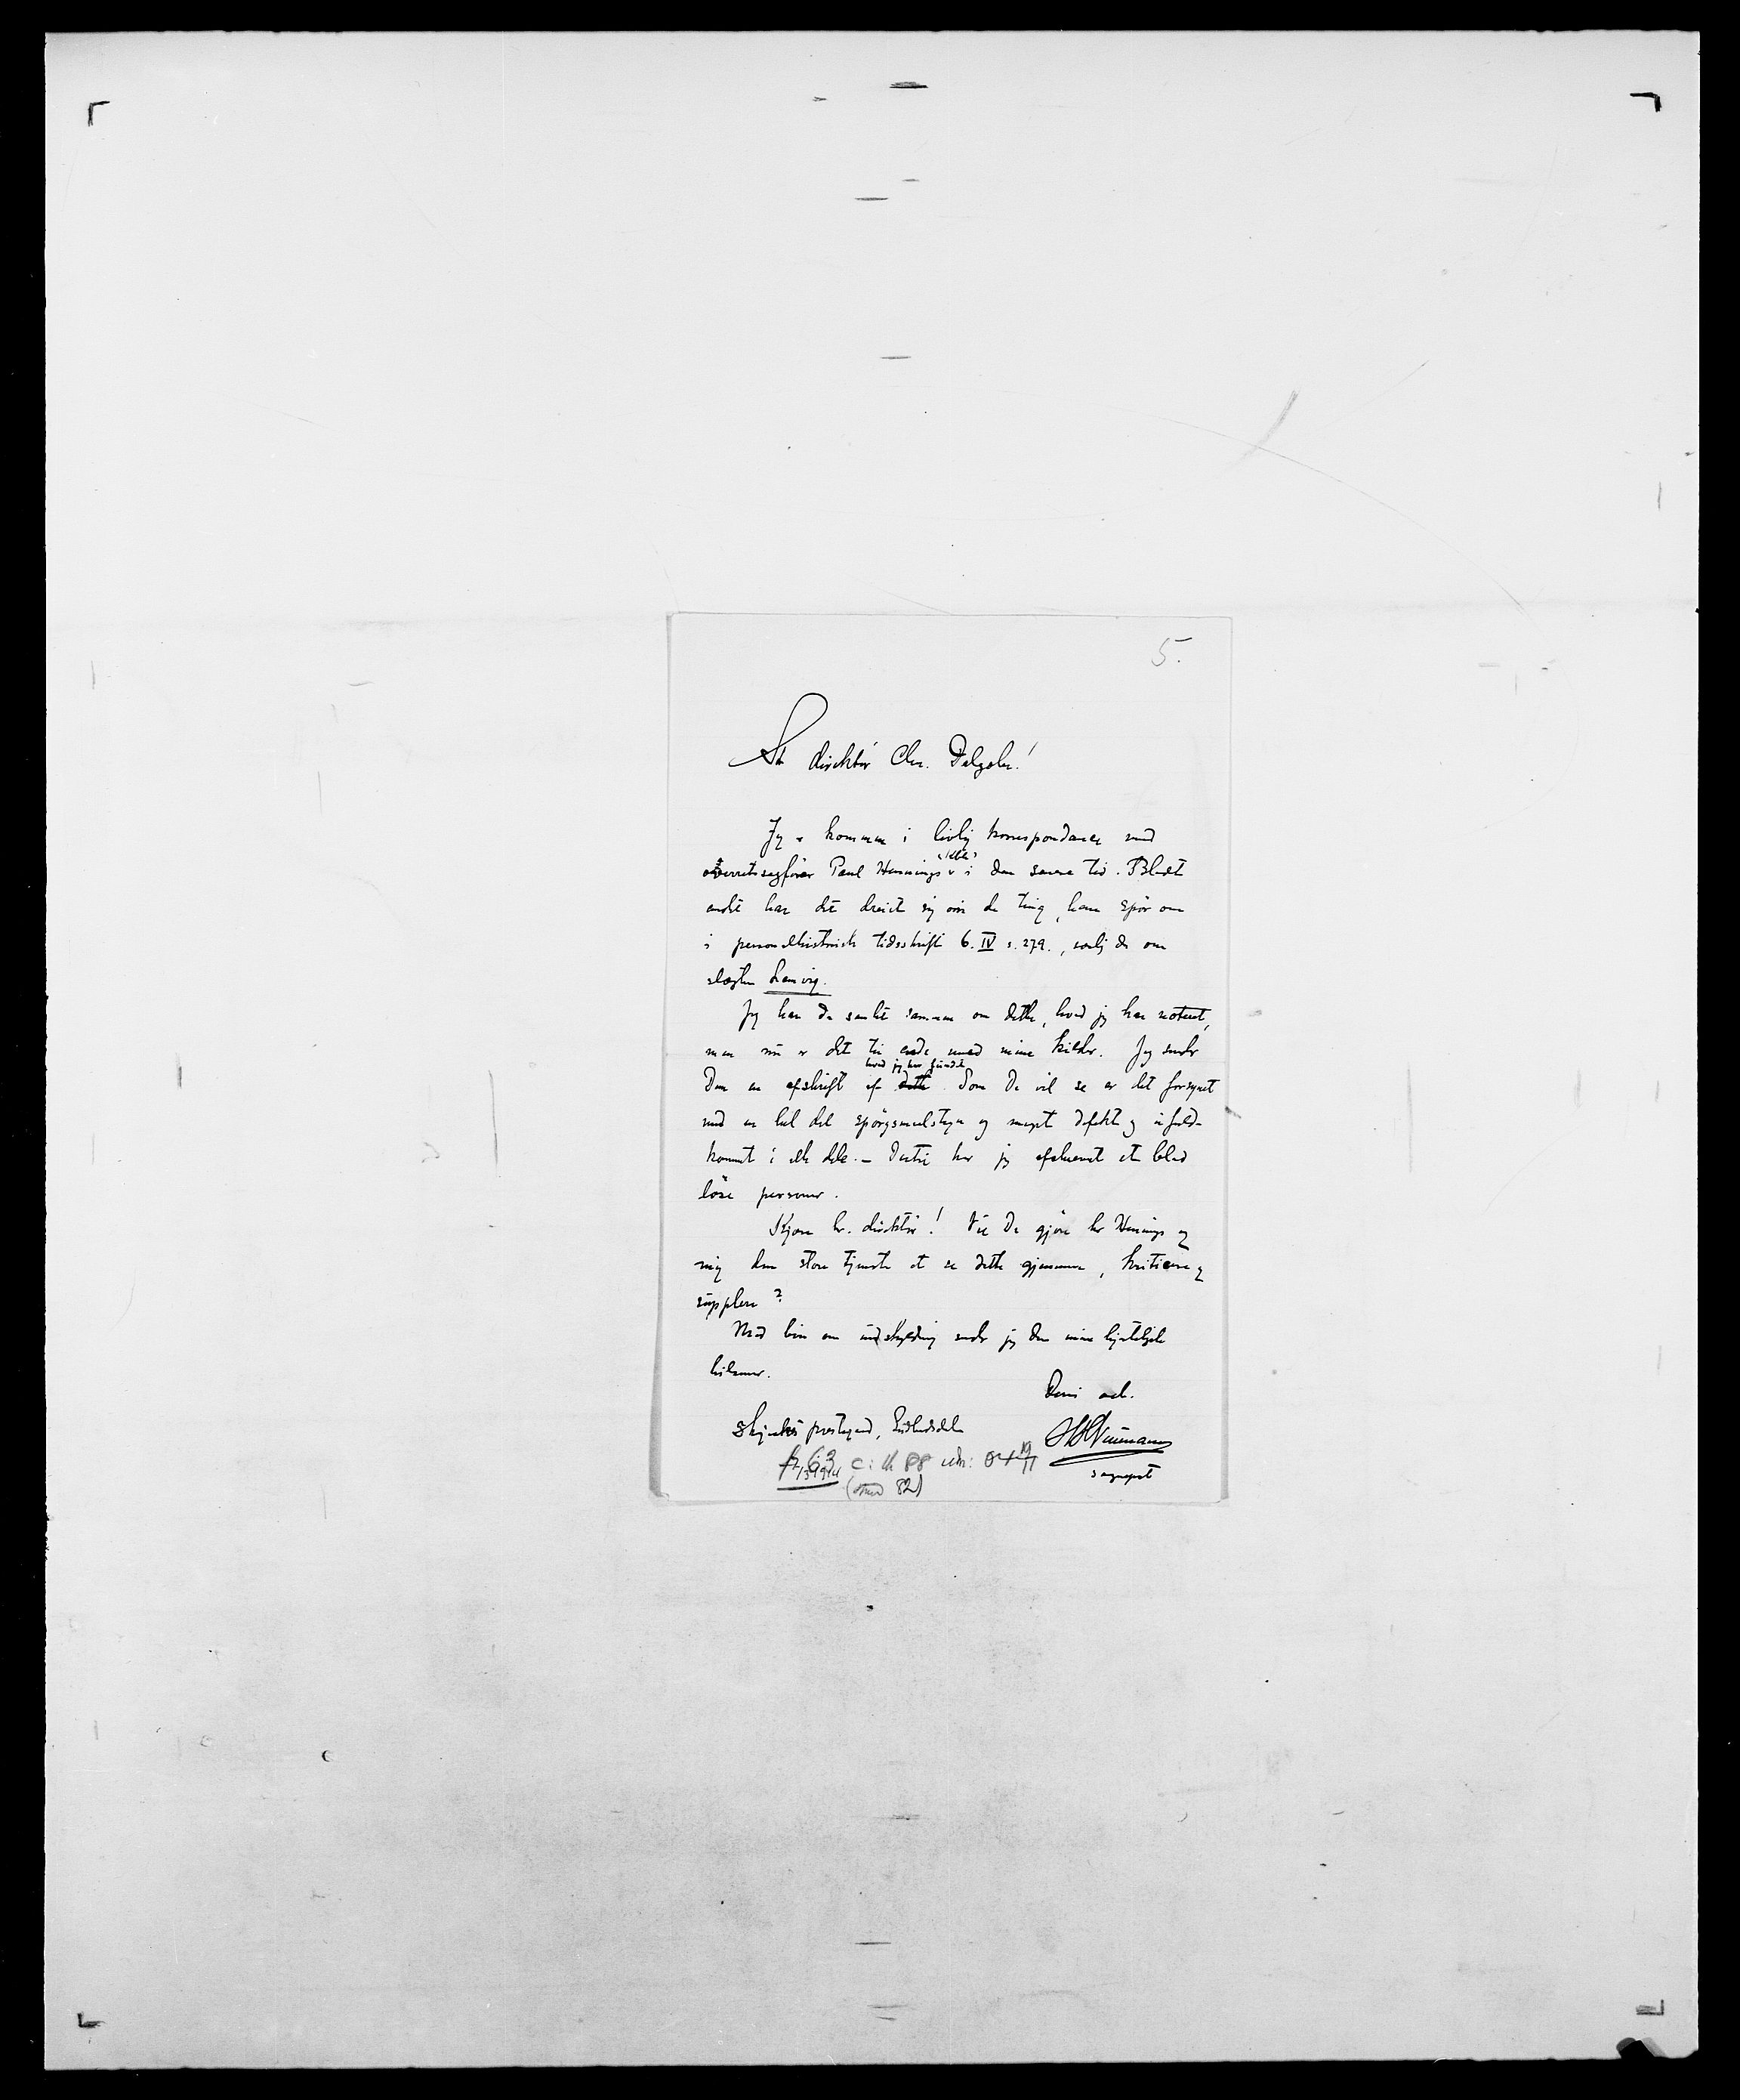 5.
Hr direktör Chr. Delgobe!
Jeg er kommen i livlig korrespondance med
overretssagförer Paul Hennings i den senere tid. Blandt
andet har det dreiet sig om de ting, han spör om
i personalhistorisk tidsskrift 6. IV s. 279., særlig da om
slægten Lemvig.
Jeg har da samlet sammen om dette, hvad jeg har noteret,
men nu er det til ende med mine kilder. Jeg sender
hvad jeg har fundet
Dem en afskrift af dette Som De vil se er det forsynet
med en hel del spörgsmaalstegn og meget defekt og ufuld-
komment i alle dele. – Dertil har jeg afskrevet et blad
löse personer.
Kjære hr. direktör! Vil De gjöre hr Hennings og
mig den store tjeneste at se dette gjennem, kritisere og
supplere?
Med bön om undskyldning sender jeg Dem mine hjerteligste
hilsener.
Deres ærb.
Skjaker prestegaard, Gudbrandsdalen
sogneprest
(med 82)